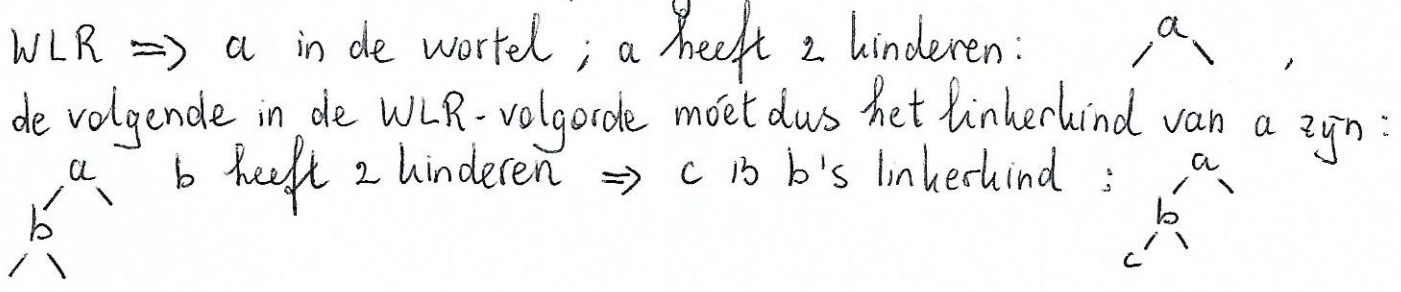 WLR => a in de wortel ; a heeft 2 kinderen : a ,
de volgende in de WLR-volgorde móet dus het linkerkind van a zijn :
a b heeft 2 kinderen => c is b's linkerkind : a
b b
c